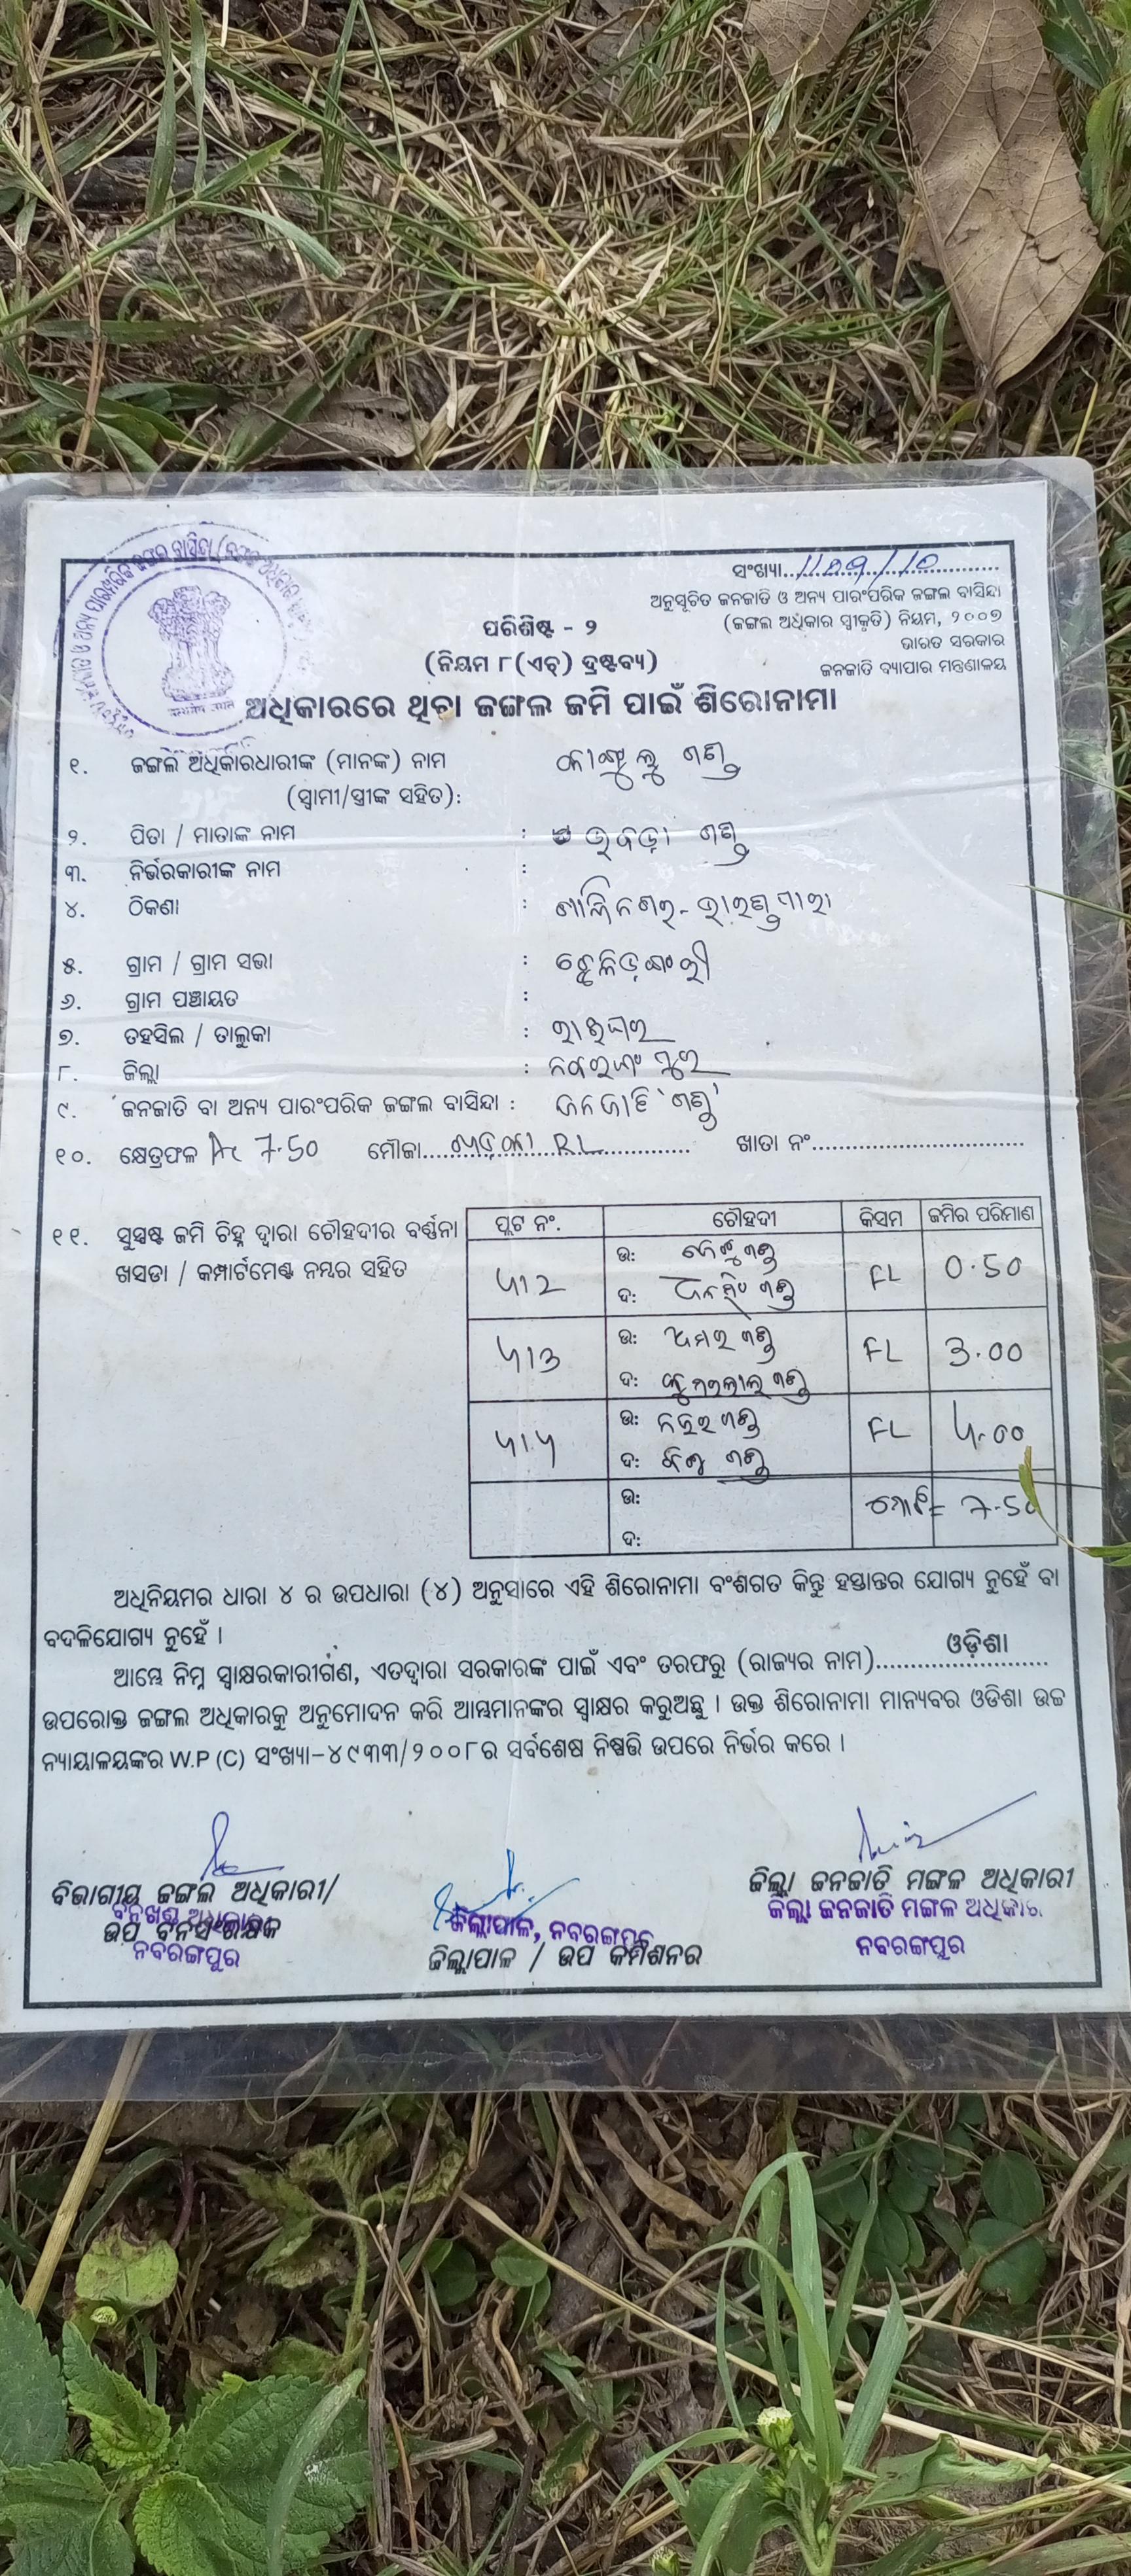 ସଂଖ୍ୟା
ଅନୁସୂଚିତ ଜନଜାତି ଓ ଅନ୍ୟ ପାରଂପରିକ ଜଙ୍ଗଲ ବାସିନ୍ଦା
(ଜଙ୍ଗଲ ଅଧିକାର ସ୍ୱୀକୃତି) ନିୟମ, ୨୦୦୭
ଭାରତ ସରକାର
ଜନଜାତି ବ୍ୟାପାର ମନ୍ତ୍ରଣାଳୟ
ପରିଶିଷ୍ଟ - ୨
(ନିୟମ ୮(ଏଚ୍) ଦ୍ରଷ୍ଟବ୍ୟ)
ଅଧିକାରରେ ଥିବା ଜଙ୍ଗଲ ଜମି ପାଇଁ ଶିରୋନାମା
୧. ଜଙ୍ଗଲ ଅଧିକାରଧାରୀଙ୍କ (ମାନଙ୍କ) ନାମ ଗଣ୍ଡ
(ସ୍ୱାମୀ/ସ୍ତ୍ରୀଙ୍କ ସହିତ):
୨. ପିତା / ମାତାଙ୍କ ନାମ : ଗଣ୍ଡ
୩. ନିର୍ଭରକାରୀଙ୍କ ନାମ :
୪. ଠିକଣା :
୫. ଗ୍ରାମ / ଗ୍ରାମ ସଭା :
୬. ଗ୍ରାମ ପଞ୍ଚାୟତ :
୭. ତହସିଲ / ତାଲୁକା : ରାଇଘର
୮. ଜିଲ୍ଲା : ନବରଙ୍ଗପୁର
୯. ଜନଜାତି ବା ଅନ୍ୟ ପାରଂପରିକ ଜଙ୍ଗଲ ବାସିନ୍ଦା : ଜନଜାତି 'ଗଣ୍ଡ'
୧୦. କ୍ଷେତ୍ରଫଳ Ac 7.50 ମୌଜା RL ଖାତା ନଂ
୧୧. ସୁସ୍ପଷ୍ଟ ଜମି ଚିହ୍ନ ଦ୍ୱାରା ଚୌହଦୀର ବର୍ଣ୍ଣନା
ଖସଡା / କମ୍ପାର୍ଟମେଣ୍ଟ ନମ୍ବର ସହିତ
ପ୍ଲଟ ନଂ. ଚୌହଦୀ କିସମ ଜମିର ପରିମାଣ
ଉ: ଗଣ୍ଡ
ଦ: ଗଣ୍ଡ
FL 0.50
ଉ: ଅମର ଗଣ୍ଡ
ଦ: ଗଣ୍ଡ
FL 3.00
ଉ: ଗଣ୍ଡ
ଦ: ଗଣ୍ଡ
FL 4.00
ଉ:
ଦ:
ମୋଟ = 7.50
ଅଧିନିୟମର ଧାରା ୪ ର ଉପଧାରା (୪) ଅନୁସାରେ ଏହି ଶିରୋନାମା ବଂଶଗତ କିନ୍ତୁ ହସ୍ତାନ୍ତର ଯୋଗ୍ୟ ନୁହେଁ ବା
ବଦଳିଯୋଗ୍ୟ ନୁହେଁ ।
ଆମ୍ଭେ ନିମ୍ନ ସ୍ୱାକ୍ଷରକାରୀଗଣ, ଏତଦ୍ୱାରା ସରକାରଙ୍କ ପାଇଁ ଏବଂ ତରଫରୁ (ରାଜ୍ୟର ନାମ) ଓଡ଼ିଶା
ଉପରୋକ୍ତ ଜଙ୍ଗଲ ଅଧିକାରକୁ ଅନୁମୋଦନ କରି ଆମ୍ଭମାନଙ୍କର ସ୍ୱାକ୍ଷର କରୁଅଛୁ । ଉକ୍ତ ଶିରୋନାମା ମାନ୍ୟବର ଓଡିଶା ଉଚ୍ଚ
ନ୍ୟାୟାଳୟଙ୍କର W.P (C) ସଂଖ୍ୟା-୪୯୩୩/୨୦୦୮ର ସର୍ବଶେଷ ନିଷ୍ପତ୍ତି ଉପରେ ନିର୍ଭର କରେ ।
ବିଭାଗୀୟ ଜଙ୍ଗଲ ଅଧିକାରୀ/
ବନଖଣ୍ଡ ଅଧିକାରୀ
ଉପ ବନସଂରକ୍ଷକ
ନବରଙ୍ଗପୁର
ଜିଲ୍ଲାପାଳ, ନବରଙ୍ଗପୁର
ଜିଲ୍ଲାପାଳ / ଉପ କମିଶନର
ଜିଲ୍ଲା ଜନଜାତି ମଙ୍ଗଳ ଅଧିକାରୀ
ଜିଲ୍ଲା ଜନଜାତି ମଙ୍ଗଳ ଅଧିକାରୀ
ନବରଙ୍ଗପୁର